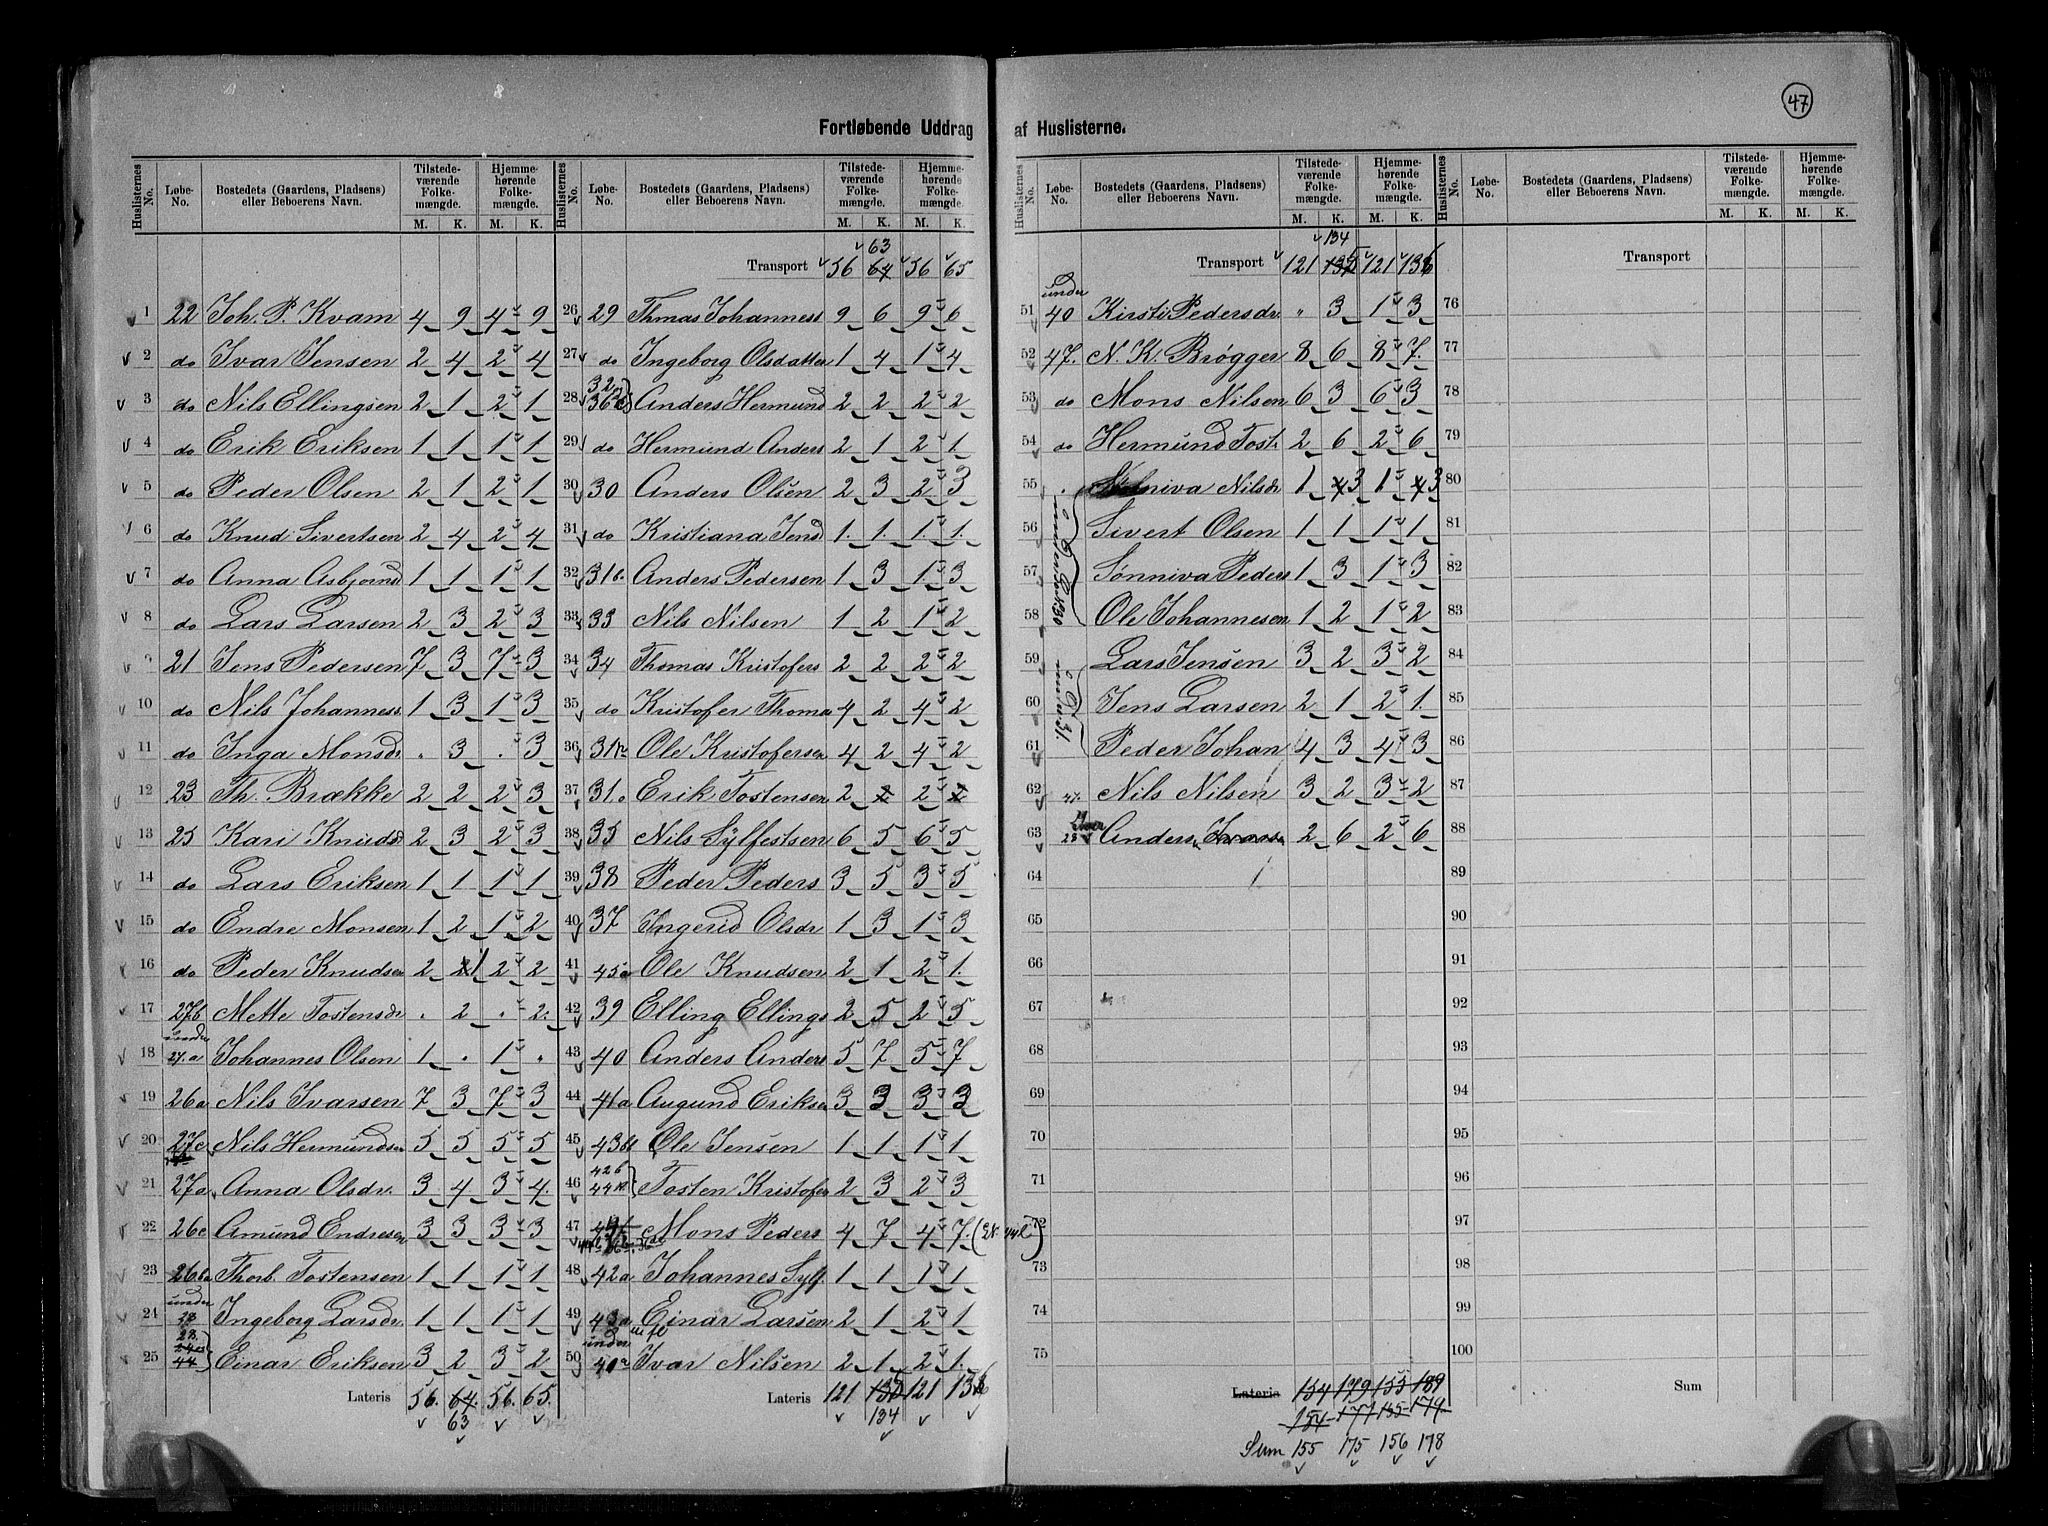 47
Fortløbende Uddrag af Huslisterne.
Huslisternes No. Løbe-No. Bostedets (Gaardens, Pladsens) eller Beboerens Navn. Tilstedeværende Folkemængde. Hjemmehørende Folkemængde.
M. K. M. K.
1 22 Joh. P. Kvam 4 9 4 9
2 do Ivar Jensen 2 4 2 4
3 do Nils Ellingsen 2 1 2 1
4 do Erik Eriksen 1 1 1 1
5 do Peder Olsen 2 1 2 1
6 do Knud Sivertsen 2 4 2 4
7 do Anna Asbjornd 1 1 1 1
8 do Lars Larsen 2 3 2 3
9 21 Jens Pedersen 7 3 7 3
10 do Nils Johanness. 1 3 1 3
11 do Inga Monsdr . 3 . 3
12 23 Th. Brække 2 2 2 3
13 25 Kari Knudsd 2 3 2 3
14 do Lars Eriksen 1 1 1 1
15 do Endre Monsen 1 2 1 2
16 do Peder Knudsen 2 1 2 2
17 27b Mette Tostensdr . 2 . 2.
18 under 27.a Johannes Olsen 1 . 1 .
19 26a Nils Ivarsen 7 3 7 3
20 27c Nils Hermundsen 5 5 5 5
21 27a Anna Olsdr. 3 4 3 4.
22 26c Amund Endresen 3 3 3 3
23 26b Thorb. Tostensen 1 1 1 1
24 under 28 Ingeborg Larsdr. 1 1 1 1
25 28. 44 Einar Eriksen 3 2 3 2
Lateris 56. 64. 56. 65.
63
63
Transport 56 64 56 65
26 29 Thmas Johanness 9 6 9 6
27 do Ingeborg Olsdatter 1 4 1 4
28 32 36 Anders Hermund 2 2 2 2
29 do Hermund Anders 2 1 2 1.
30 30 Anders Olsen 2 3 2 3
31 do Kristiana Jensd 1. 1. 1. 1.
32 31b. Anders Pedersen 1 3 1 3
33 33 Nils Nilsen 1 2 1 2
34 34 Thomas Kristofers 2 2 2 2
35 do Kristofer Thoma 4 2 4 2
36 31 Ole Kristofersen 4 2 4 2
37 31 Erik Tostensen 2 2
38 35 Nils Sylfestsen 6 5 6 5
39 38 Peder Peders 3 5 3 5
40 37 Ingerid Olsdr 1 3 1 3
41 45a Ole Knudsen 2 1 2 1.
42 39 Elling Ellings 2 5 2 5
43 40 Anders Anders 5 7 5 7
44 41a Augund Erikse 3 3 3 3
45 43b Ole Jensen 1 1 1 1.
46 42b 44 Tosten Kristofer 2 3 2 3
47 Mons Peders 4 7 4 7.
48 42a Johannes Sylf 1 1 1 1
49 43a Einar Larsen 2 1 2 1
50 under 40 Ivar Nilsen 2 1 2 1.
Lateris 121 121 136
134
134
Transport 121 121 136
51 under 40 Kirsti Pedersdr. " 3 1 3
52 47. N. K. Brøgger 8 6 8 7.
53 do Mons Nilsen 6 3 6 3
54 do Hermund Tost. 2 6 2 6
55 Nilsdr 1 3 1 3
56 Sivert Olsen 1 1 1 1
57 Sønniva Peders 1 3 1 3
58 Ole Johannesen 1 2 1 2
59 Lars Jensen 3 2 3 2
60 Jens Larsen 2 1 2 1.
61 Peder Johan 4 3 4 3
62 47. Nils Nilsen 3 2 3 2
63 28 Anders Ivarsen 2 6 2 6
64
65
66
67
68
69
70
71
72
73
74
75
Lateris 154 179 155 189
154 177 155 179
Sum 155 175 156 178
Transport
76
77
78
79
80
81
82
83
84
85
86
87
88
89
90
91
92
93
94
95
96
97
98
99
100
Sum